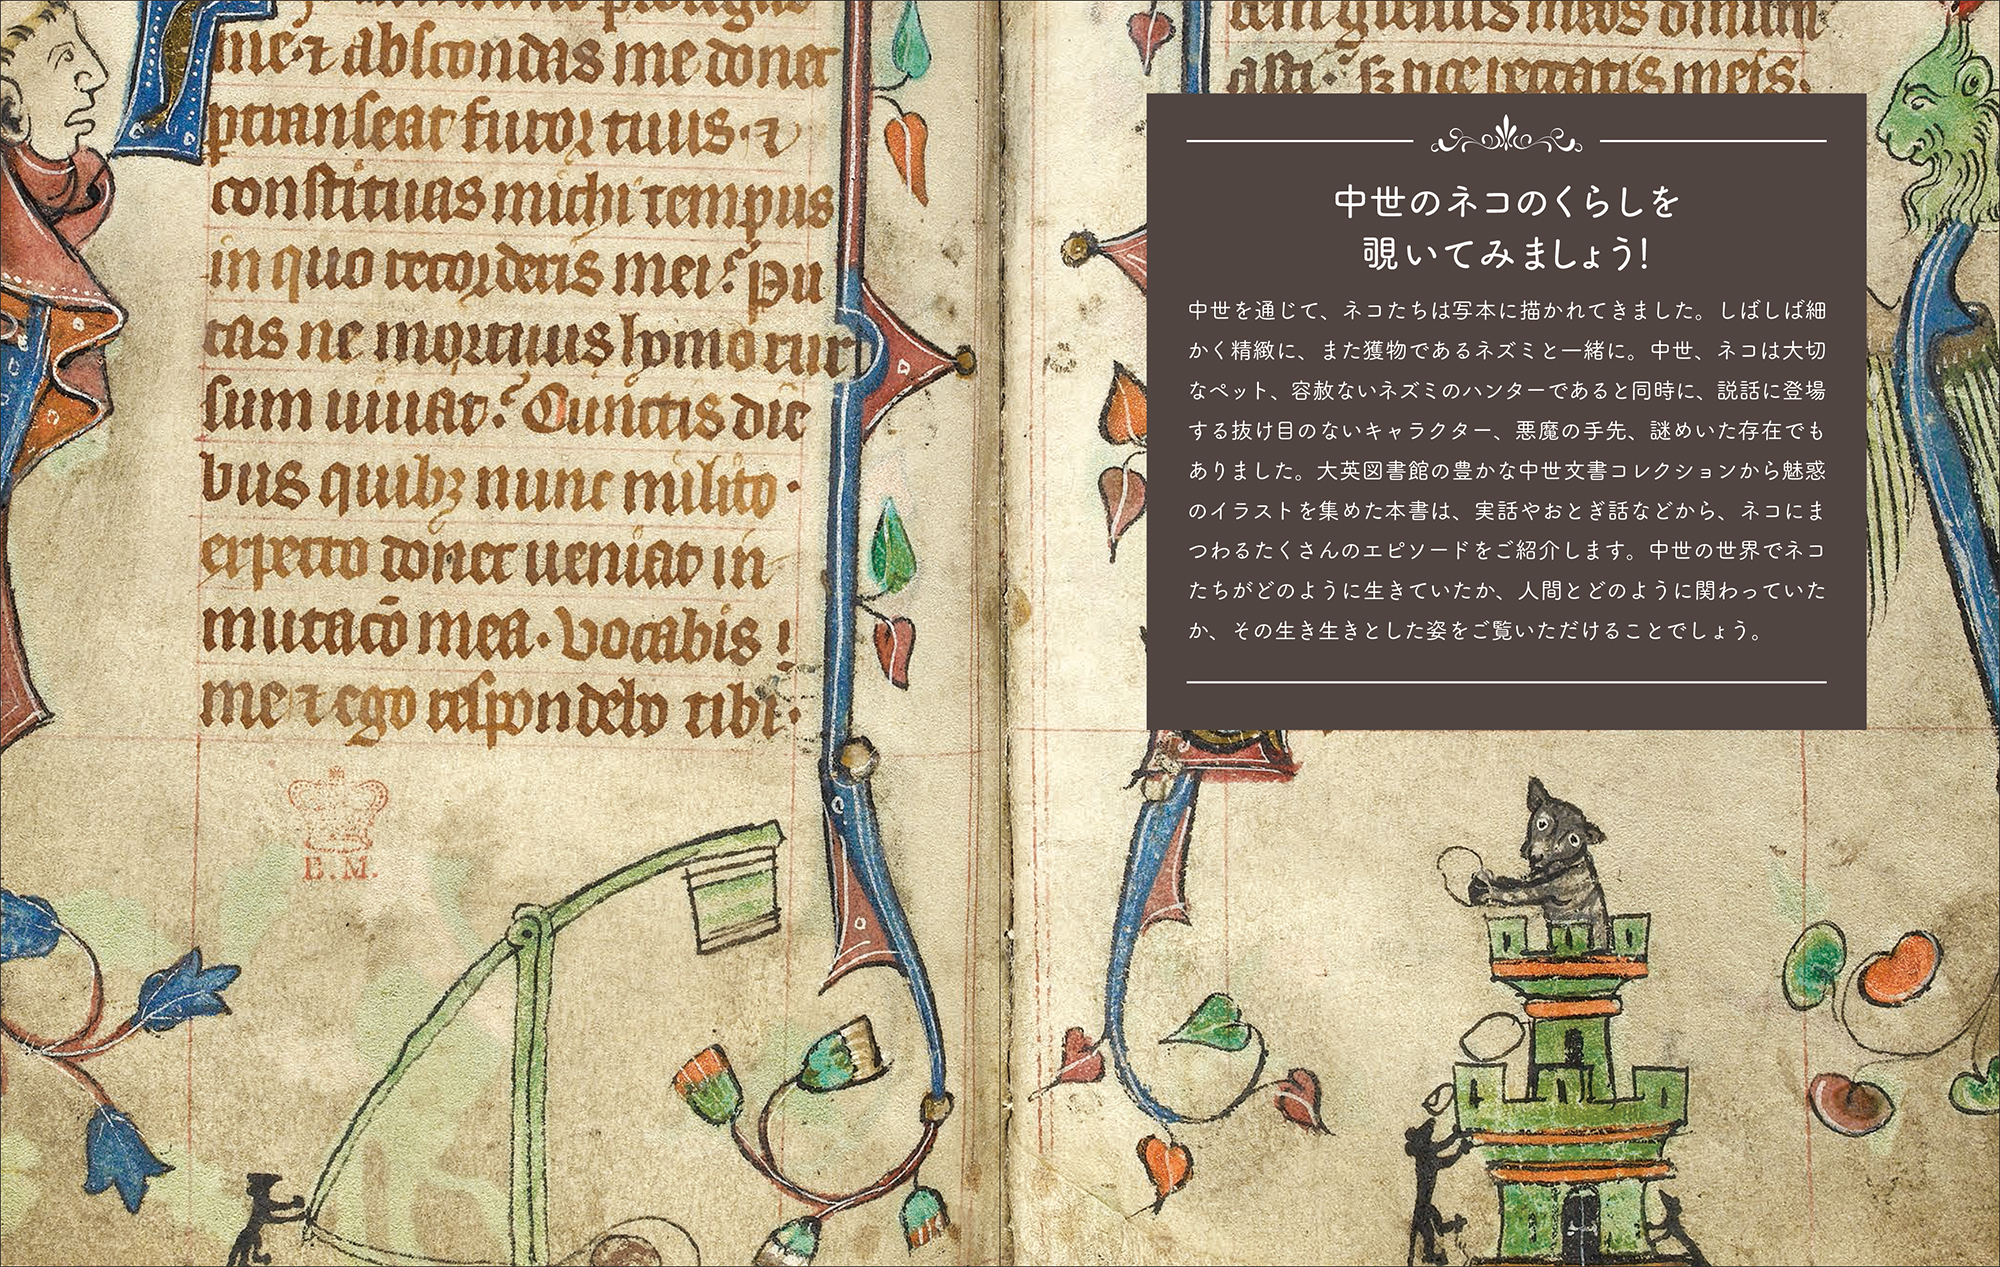 me⁊ abscondas me donec
ptranseat furor tuus·⁊
constituas michi tempus
in quo recorderis mei? Pu
tas ne mortuus homo rur
sum uiuat? Cunctis die
bus quibꝫ nunc milito·
expecto donec ueniat in
mutacō mea· Vocabis
me ⁊ ego respondebo tibi·
B.M.
中世のネコのくらしを
覗いてみましょう!
中世を通じて、ネコたちは写本に描かれてきました。しばしば細
かく精緻に、また獲物であるネズミと一緒に。中世、ネコは大切
なペット、容赦ないネズミのハンターであると同時に、説話に登場
する抜け目のないキャラクター、悪魔の手先、謎めいた存在でも
ありました。大英図書館の豊かな中世文書コレクションから魅惑
のイラストを集めた本書は、実話やおとぎ話などから、ネコにま
つわるたくさんのエピソードをご紹介します。中世の世界でネコ
たちがどのように生きていたか、人間とどのように関わっていた
か、その生き生きとした姿をご覧いただけることでしょう。